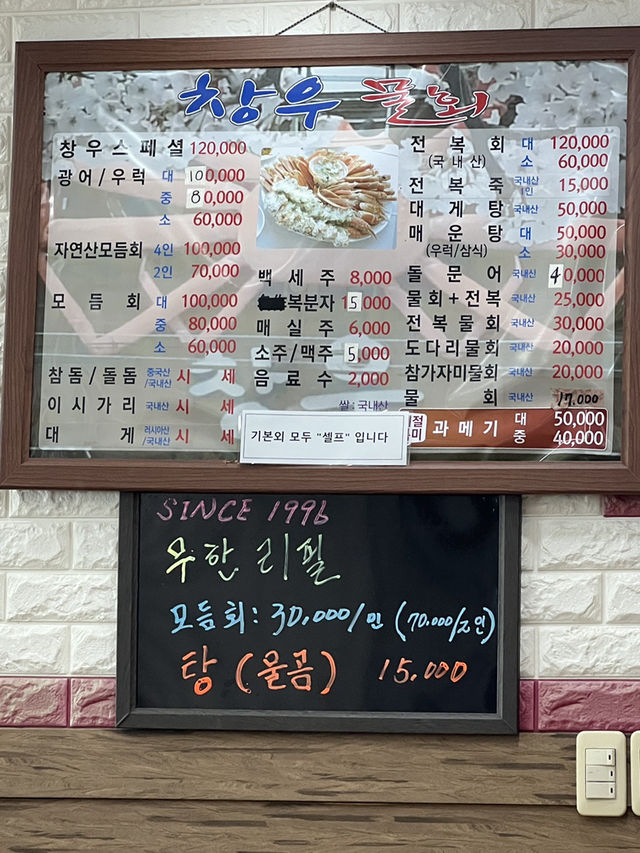 창우 물회
창우스페셜 120,000
광어/우럭 대 100,000
중 80,000
소 60,000
자연산모듬회 4인 100,000
2인 70,000
모듬회 대 100,000
중 80,000
소 60,000
참돔/돌돔 중국산/국내산 시세
이시가리 국내산 시세
대게 러시아산/국내산 시세
백세주 8,000
복분자 15,000
매실주 6,000
소주/맥주 5,000
음료수 2,000
쌀 : 국내산
기본외 모두 "셀프" 입니다
전복회 대 120,000
(국내산) 소 60,000
전복죽 국내산 1인 15,000
대게탕 국내산 50,000
매운탕 대 50,000
(우럭/삼식) 소 30,000
돌문어 국내산 40,000
물회+전복 국내산 25,000
전복물회 국내산 30,000
도다리물회 국내산 20,000
참가자미물회 국내산 20,000
물회 국내산 17,000
과메기 대 50,000
중 40,000
SINCE 1996
무한리필
모듬회: 30,000/인 (70,000/2인)
탕(물곰) 15,000